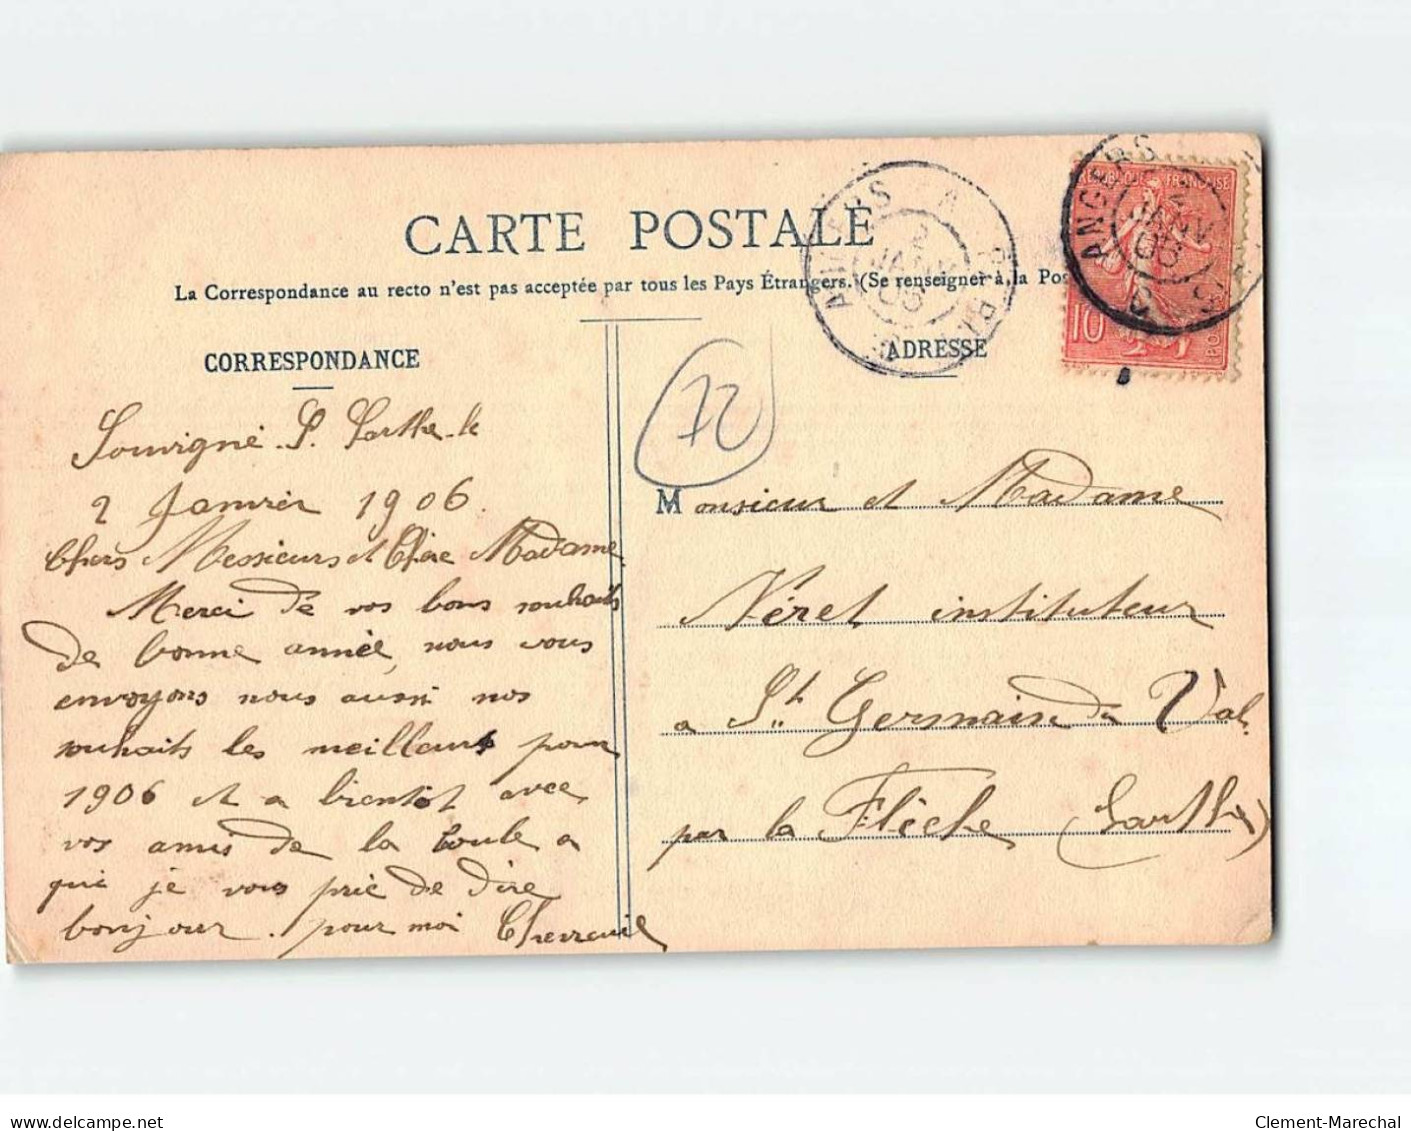 CARTE POSTALE
La Correspondance au recto n'est pas acceptée par tous les Pays Étrangers. (Se renseigner à la Pos
CORRESPONDANCE
Souvigné. S. Sarthe le
2 Janvier 1906.
Chers Messieurs et Chère Madame
Merci de vos bons souhaits
de bonne année, nous vous
envoyons nous aussi nos
souhaits les meilleurs pour
1906 et a bientôt avec
vos amis de la Toule a
qui je vous prie de dire
bonjour. pour moi Chevreuil
ADRESSE
72
Monsieur et Madame
Néret instituteur
a St Germain du Val
par la Flèche (Sarthe)
ANGERS A
2
JANV
06
ANGERS
2
JANV
06
RÉPUBLIQUE FRANÇAISE
10
Clement-Marechal
www.delcampe.net